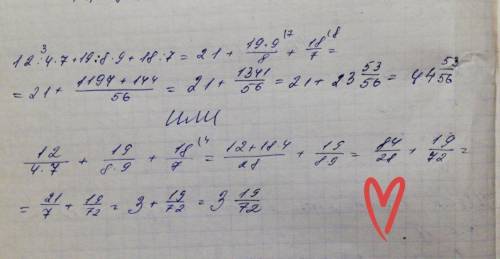 12³:4·7+19:8·9+18:7 = 21 + 19·9/8 (7 + 18/7 (8 =
= 21 + 1197+144/56 = 21 + 1341/56 = 21 + 23 53/56 = 44 53/56
ИЛИ
12/4·7 + 19/8·9 + 18/7 (4 = 12+18·4/28 + 19/89 = 84/28 + 19/72 =
= 21/7 + 19/72 = 3 + 19/72 = 3 19/72